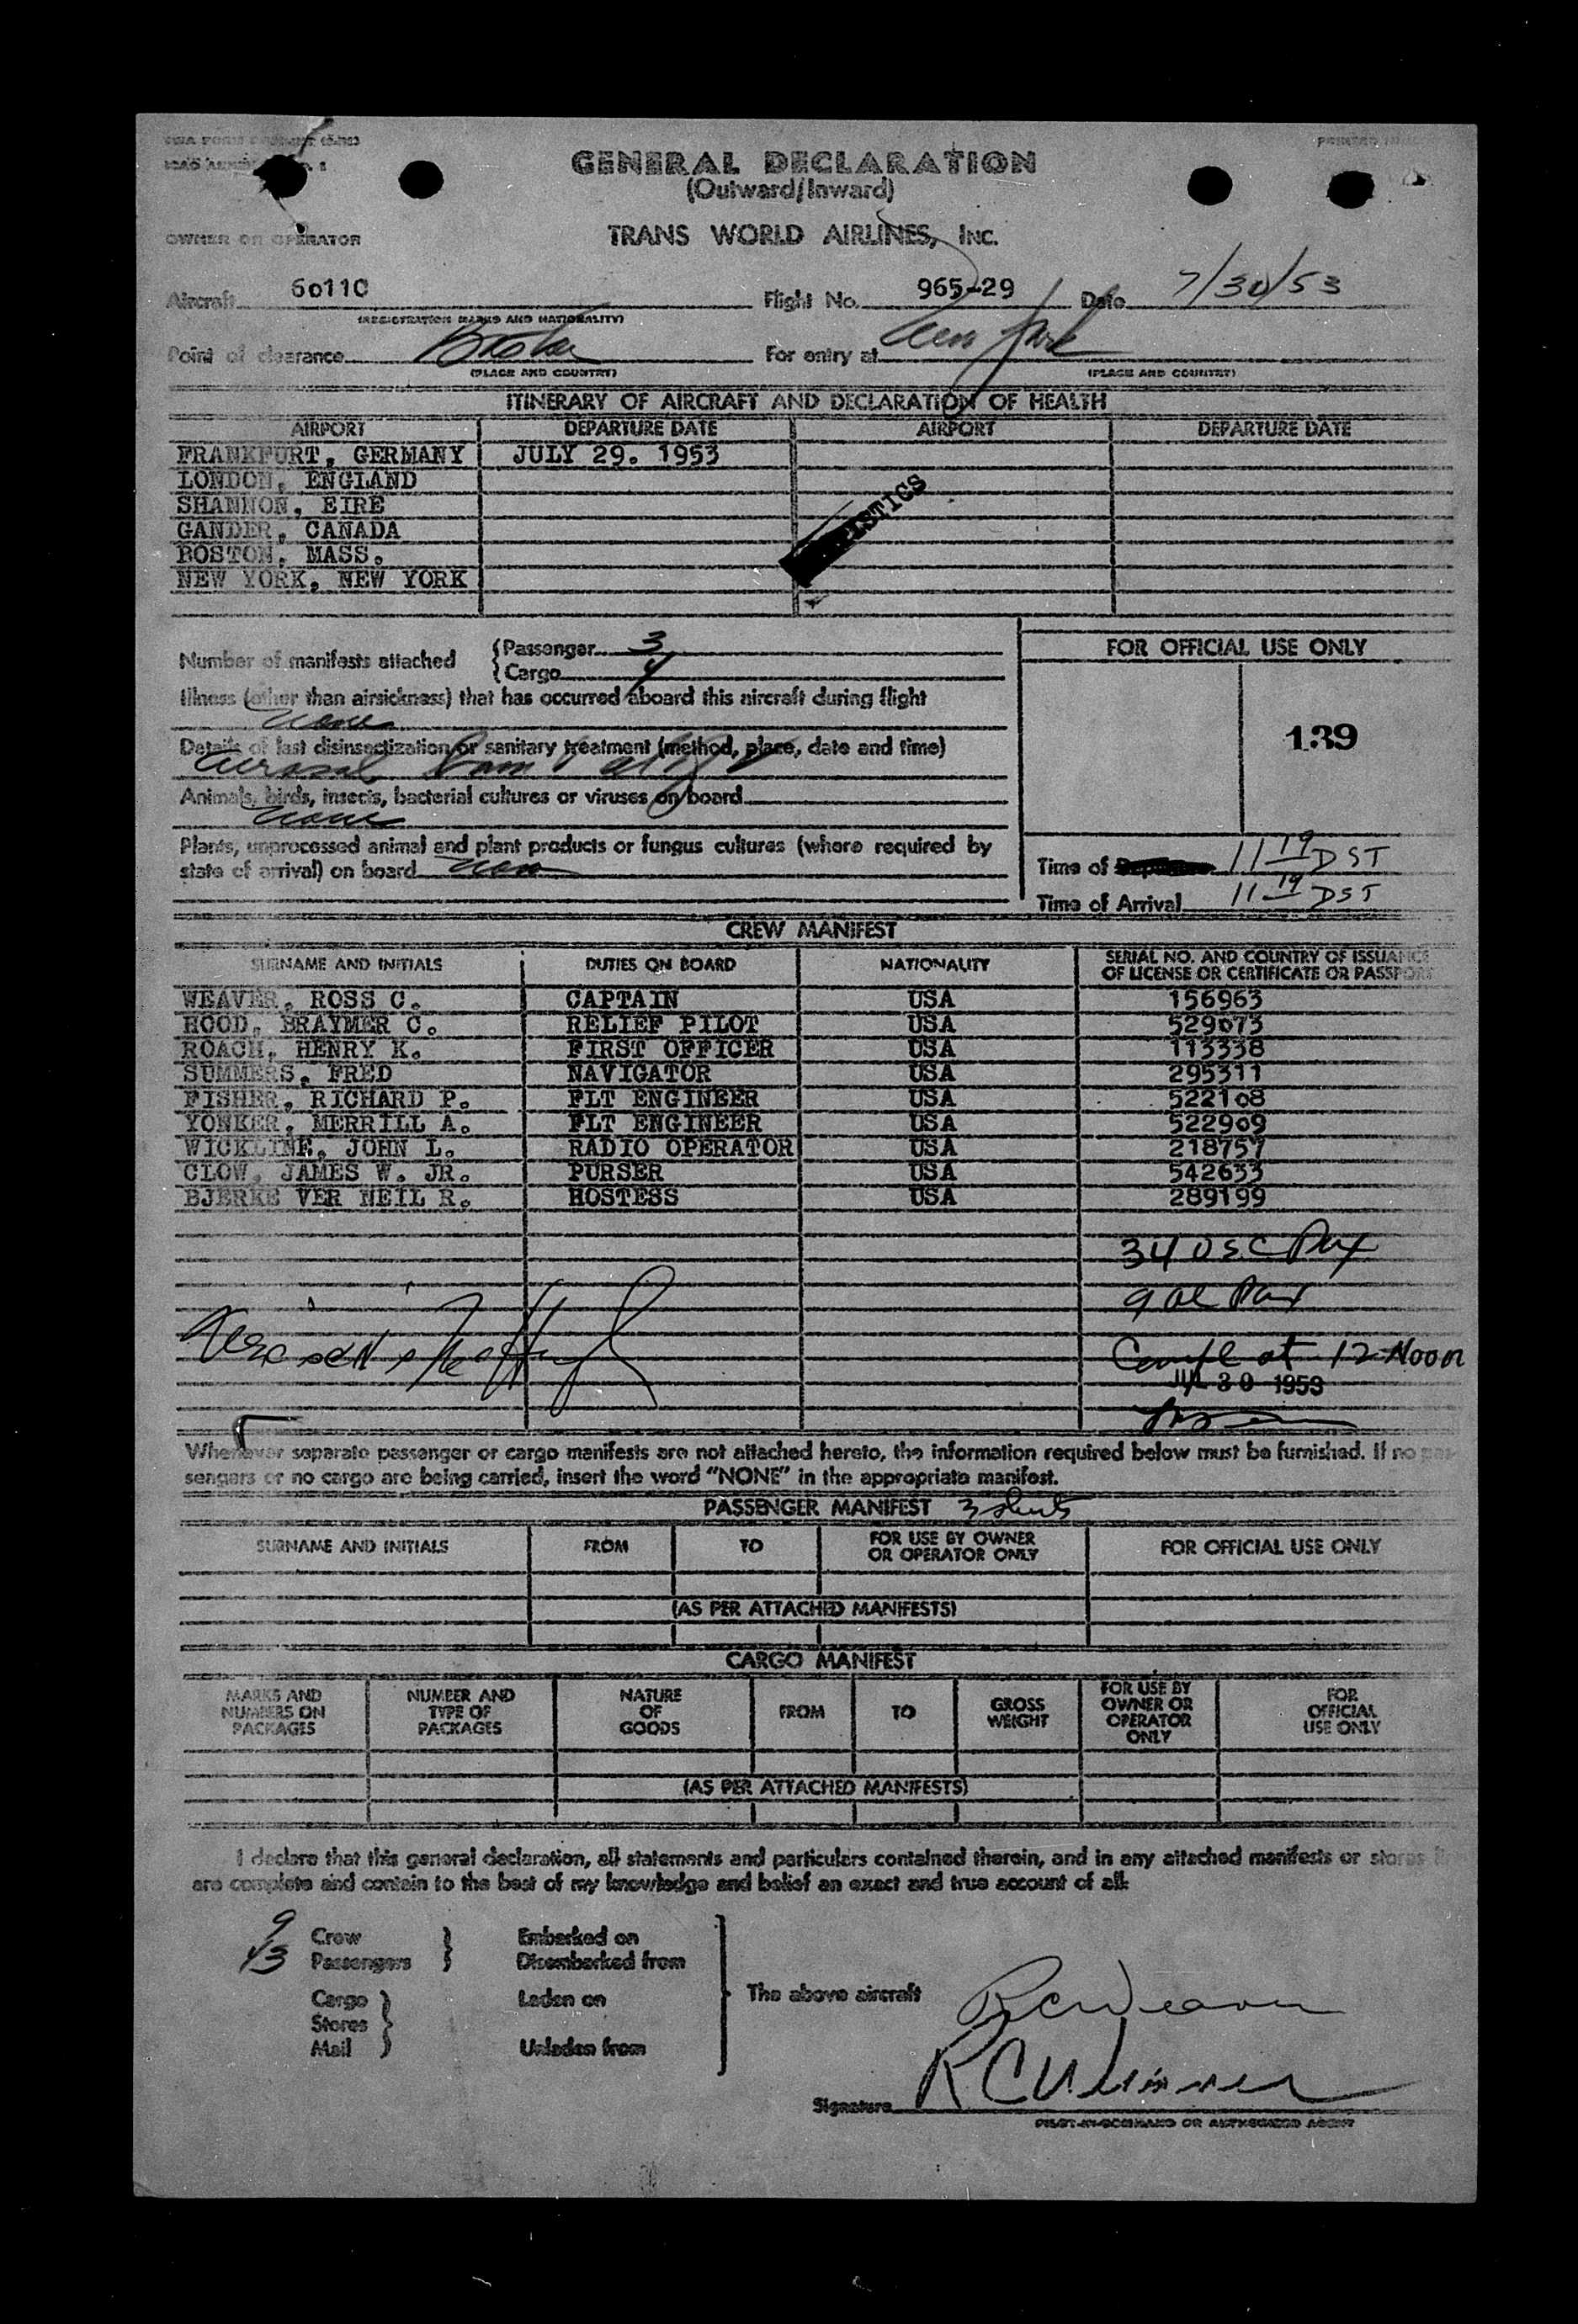 GENERAL DECLARATION
(Outward/Inward)
OWNER OR OPERATOR TRANS WORLD AIRLINES, INC.
Aircraft 60110 Flight No. 965-29 Date 7/30/53
(REGISTRATION MARKS AND NATIONALITY)
Point of clearance Boston For entry at New York
(PLACE AND COUNTRY) (PLACE AND COUNTRY)
ITINERARY OF AIRCRAFT AND DECLARATION OF HEALTH
AIRPORT DEPARTURE DATE AIRPORT DEPARTURE DATE
FRANKFURT, GERMANY JULY 29. 1953
LONDON, ENGLAND
SHANNON, EIRE
GANDER, CANADA
BOSTON, MASS.
NEW YORK, NEW YORK
Number of manifests attached {Passenger 3
{Cargo 4
FOR OFFICIAL USE ONLY
139
Illness (other than airsickness) that has occurred aboard this aircraft during flight
None
Details of last disinsectization or sanitary treatment (method, place, date and time)
Aerosol
Animals, birds, insects, bacterial cultures or viruses on board
None
Plants, unprocessed animal and plant products or fungus cultures (where required by
state of arrival) on board None
Time of 11 19 DST
Time of Arrival 11 19 DST
CREW MANIFEST
SURNAME AND INITIALS DUTIES ON BOARD NATIONALITY SERIAL NO. AND COUNTRY OF ISSUANCE
OF LICENSE OR CERTIFICATE OR PASSPORT
WEAVER, ROSS C. CAPTAIN USA 156963
HOOD, BRAYMER C. RELIEF PILOT USA 529073
ROACH, HENRY K. FIRST OFFICER USA 113338
SUMMERS, FRED NAVIGATOR USA 295311
FISHER, RICHARD P. FLT ENGINEER USA 522108
YONKER, MERRILL A. FLT ENGINEER USA 522909
WICKLINE, JOHN L. RADIO OPERATOR USA 218757
CLOW, JAMES W. JR. PURSER USA 542633
BJERKE VER NEIL R. HOSTESS USA 289199
34 USC Pax
9 al Pax
Compl at 12 Noon
JUL 30 1953
Whenever separate passenger or cargo manifests are not attached hereto, the information required below must be furnished. If no pas-
sengers or no cargo are being carried, insert the word "NONE" in the appropriate manifest.
PASSENGER MANIFEST 3 sheets
SURNAME AND INITIALS FROM TO FOR USE BY OWNER
OR OPERATOR ONLY FOR OFFICIAL USE ONLY
(AS PER ATTACHED MANIFESTS)
CARGO MANIFEST
MARKS AND
NUMBERS ON
PACKAGES NUMBER AND
TYPE OF
PACKAGES NATURE
OF
GOODS FROM TO GROSS
WEIGHT FOR USE BY
OWNER OR
OPERATOR
ONLY FOR
OFFICIAL
USE ONLY
(AS PER ATTACHED MANIFESTS)
I declare that this general declaration, all statements and particulars contained therein, and in any attached manifests or stores
are complete and contain to the best of my knowledge and belief an exact and true account of all:
9 Crew } Embarked on
43 Passengers } Disembarked from
Cargo } Laden on
Stores
Mail } Unladen from
The above aircraft R C Weaver
Signature R C Weaver
PILOT-IN-COMMAND OR AUTHORIZED AGENT